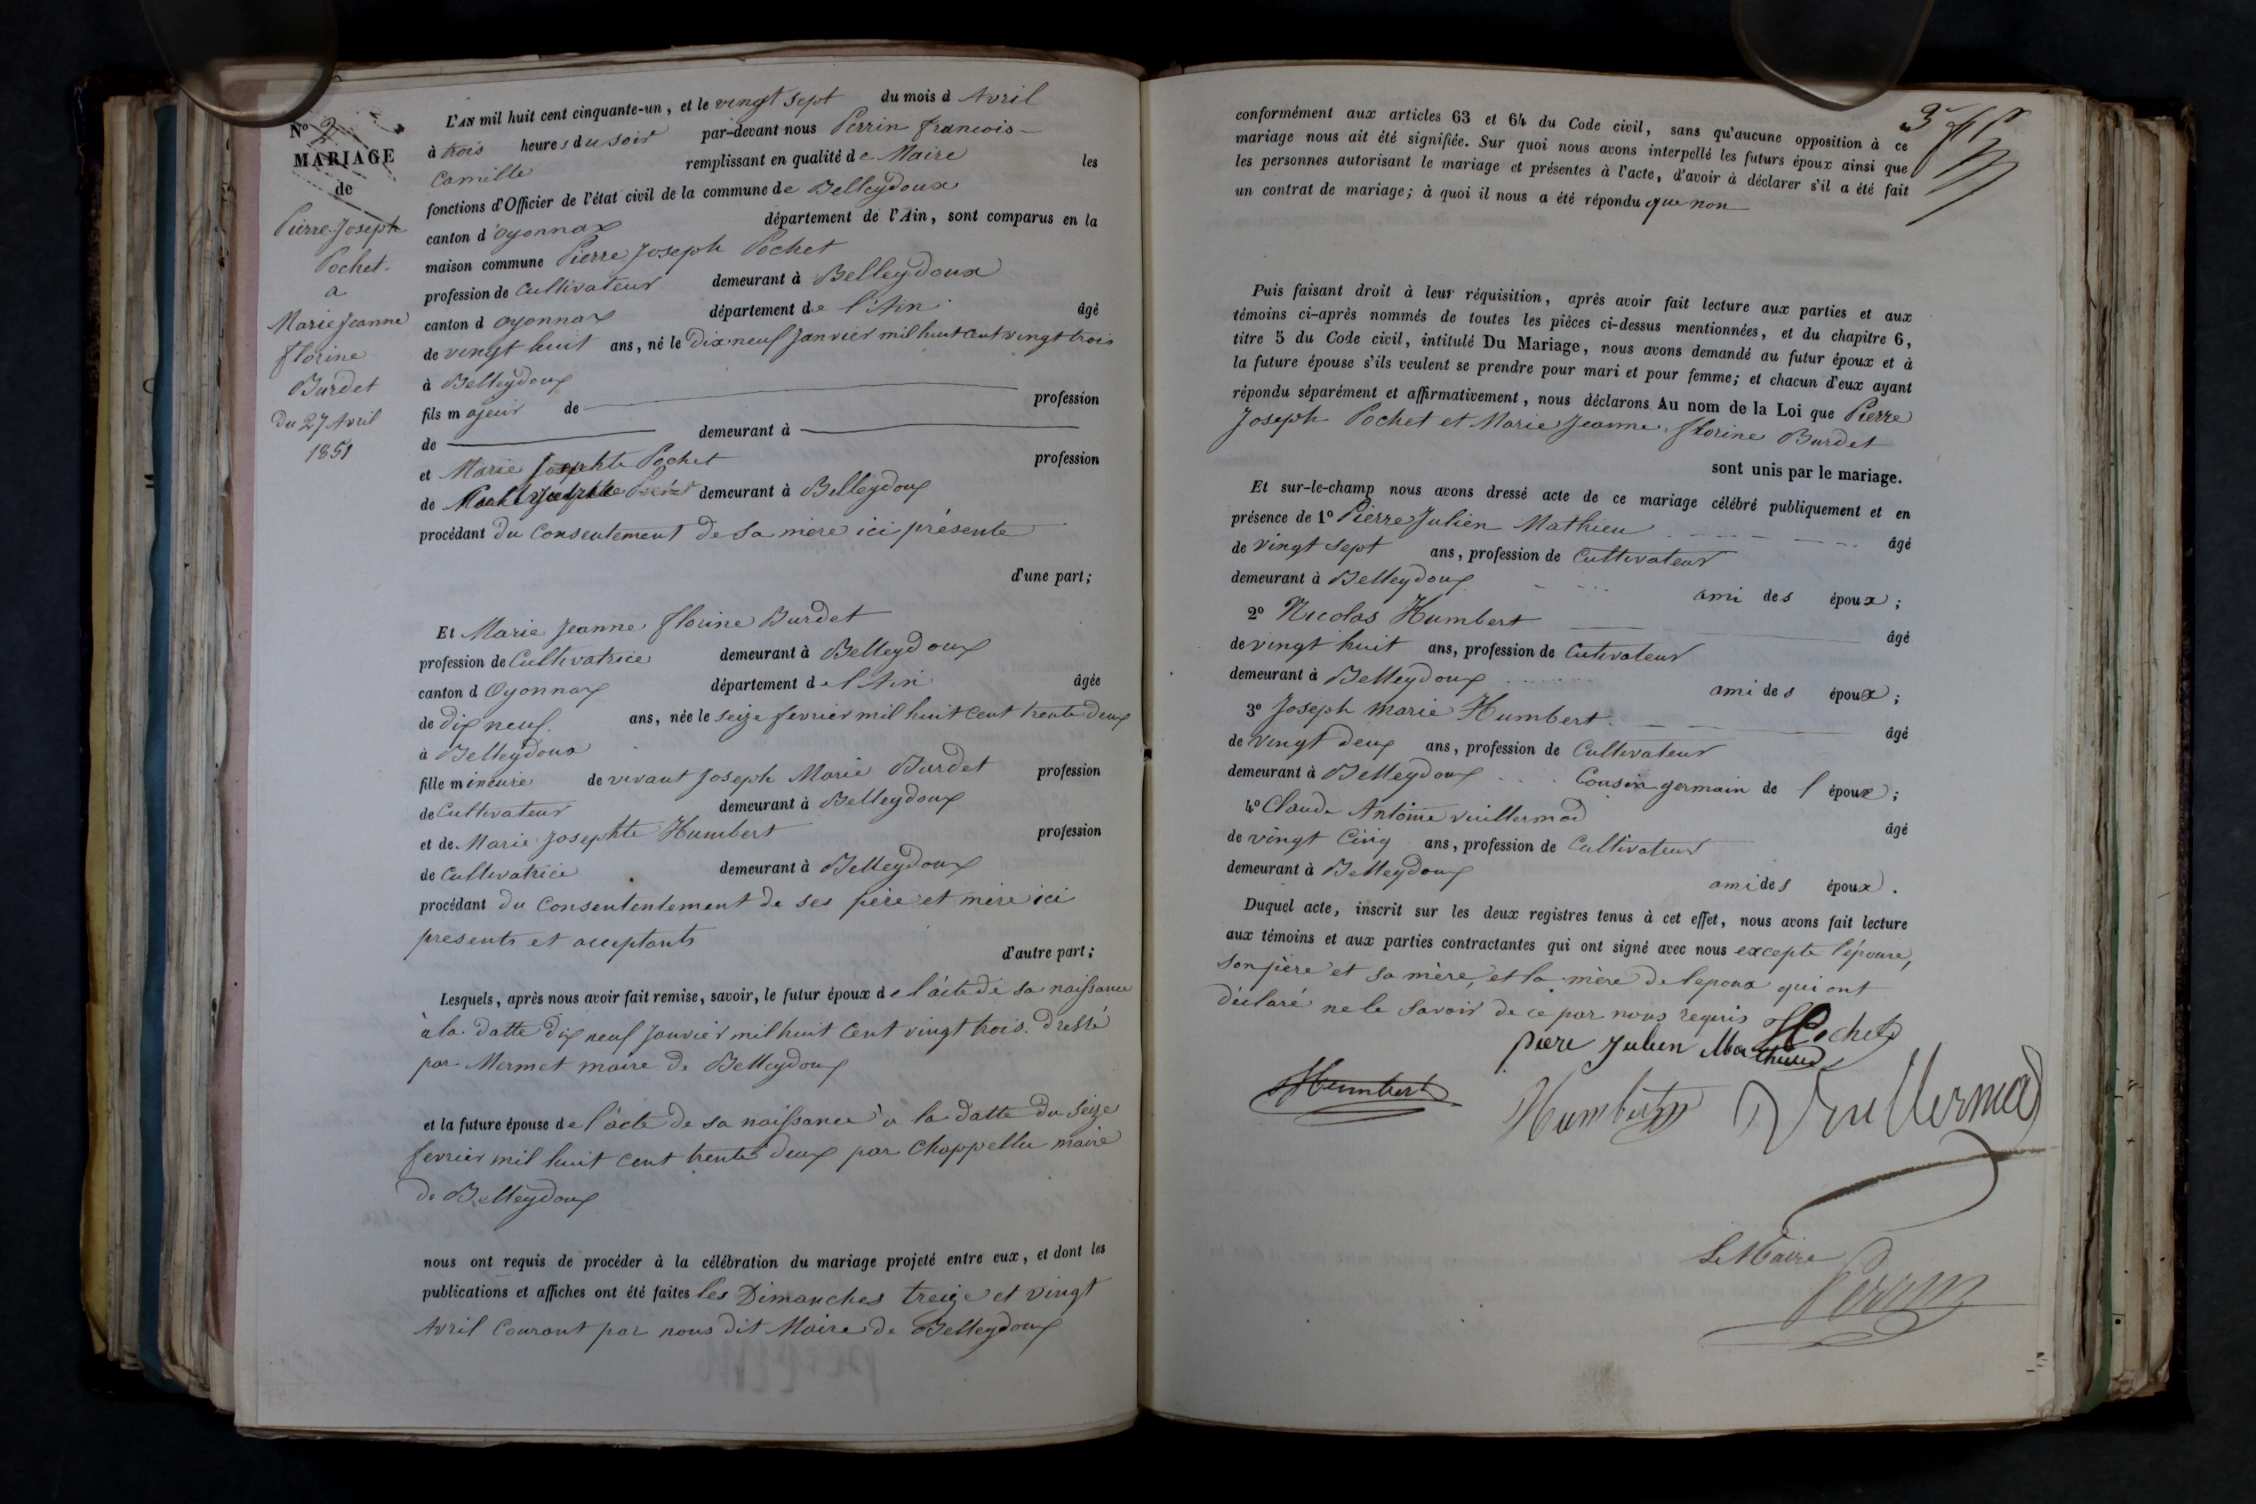 N° 2
MARIAGE
de
Pierre Joseph
Pochet
a
Marie Jeanne
florine
Burdet
Du 27 Avril
1851
L'AN mil huit cent cinquante-un, et le vingt sept du mois d Avril
à trois heures du soir par-devant nous Perrin francois
Camille remplissant en qualité de Maire les
fonctions d'Officier de l'état civil de la commune de Belleydoux
canton d oyonnax département de l'Ain, sont comparus en la
maison commune Pierre Joseph Pochet
profession de Cultivateur demeurant à Belleydoux
canton d oyonnax département de l'Ain âgé
de vingt huit ans, né le dix neuf Janvier mil huit cent vingt trois
à Belleydoux
fils majeur de profession
de demeurant à
et Marie Josephte Pochet profession
de demeurant à Belleydoux
procédant du Consentement de sa mère ici présente
d'une part;
Et Marie Jeanne florine Burdet
profession de Cultivatrice demeurant à Belleydoux
canton d Oyonnax département de l'Ain âgée
de dix neuf ans, née le seize fevrier mil huit cent trente deux
à Belleydoux
fille mineure de vivant Joseph Marie Burdet profession
de Cultivateur demeurant à Belleydoux
et de Marie Josephte Humbert profession
de Cultivatrice demeurant à Belleydoux
procédant du Consententement de ses père et mère ici
presents et acceptants
d'autre part;
Lesquels, après nous avoir fait remise, savoir, le futur époux de l'acte de sa naissance
à la datte dix neuf Janvier mil huit Cent vingt trois. dressé
par Mermet maire de Belleydoux
et la future épouse de l'acte de sa naissance à la datte du seize
fevrier mil huit cent trente deux par Chappellu maire
de Belleydoux
nous ont requis de procéder à la célébration du mariage projeté entre eux, et dont les
publications et affiches ont été faites les Dimanches treize et vingt
Avril Courant par nous dit Maire de Belleydoux
conformément aux articles 63 et 64 du Code civil, sans qu'aucune opposition à ce
mariage nous ait été signifiée. Sur quoi nous avons interpellé les futurs époux ainsi que
les personnes autorisant le mariage et présentes à l'acte, d'avoir à déclarer s'il a été fait
un contrat de mariage; à quoi il nous a été répondu que non
Puis faisant droit à leur réquisition, après avoir fait lecture aux parties et aux
témoins ci-après nommés de toutes les pièces ci-dessus mentionnées, et du chapitre 6,
titre 5 du Code civil, intitulé Du Mariage, nous avons demandé au futur époux et à
la future épouse s'ils veulent se prendre pour mari et pour femme; et chacun d'eux ayant
répondu séparément et affirmativement, nous déclarons Au nom de la Loi que Pierre
Joseph Pochet et Marie Jeanne florine Burdet
sont unis par le mariage.
Et sur-le-champ nous avons dressé acte de ce mariage célébré publiquement et en
présence de 1° Pierre Julien Mathieu âgé
de vingt sept ans, profession de Cultivateur
demeurant à Belleydoux ami des époux;
2° Nicolas Humbert âgé
de vingt huit ans, profession de Cutivateur
demeurant à Belleydoux ami des époux;
3° Joseph Marie Humbert âgé
de vingt deux ans, profession de Cultivateur
demeurant à Belleydoux Cousin germain de l époux;
4° Claude Antoine vuillermod âgé
de vingt Cinq ans, profession de Cultivateur
demeurant à Belleydoux ami des époux.
Duquel acte, inscrit sur les deux registres tenus à cet effet, nous avons fait lecture
aux témoins et aux parties contractantes qui ont signé avec nous excepte l'épouse,
son père et sa mère, et la mère de lepoux qui ont
déclaré ne le savoir de ce par nous requis
Pochet
piere Julien Mathieu
Humbert
Humbert
Vuillermod
Le Maire
Perrin